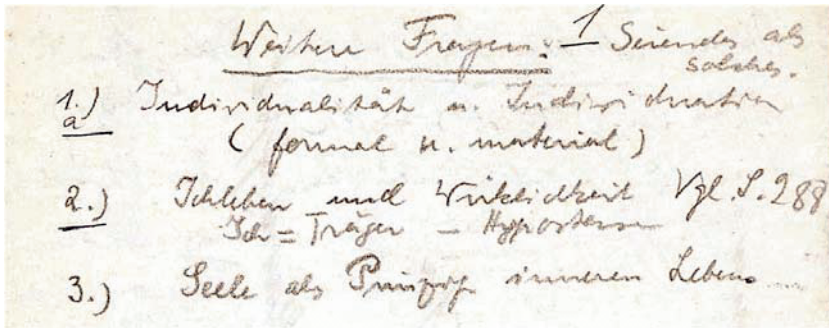 Weitere Fragen: 1 Seiendes als
solches.
1.) Individualität u. Individuation
a
( formal u. material )
2.) Ichleben und Wirklichkeit Vgl. S. 288
Ich = Träger – Hypostase
3.) Seele als Prinzip inneren Lebens